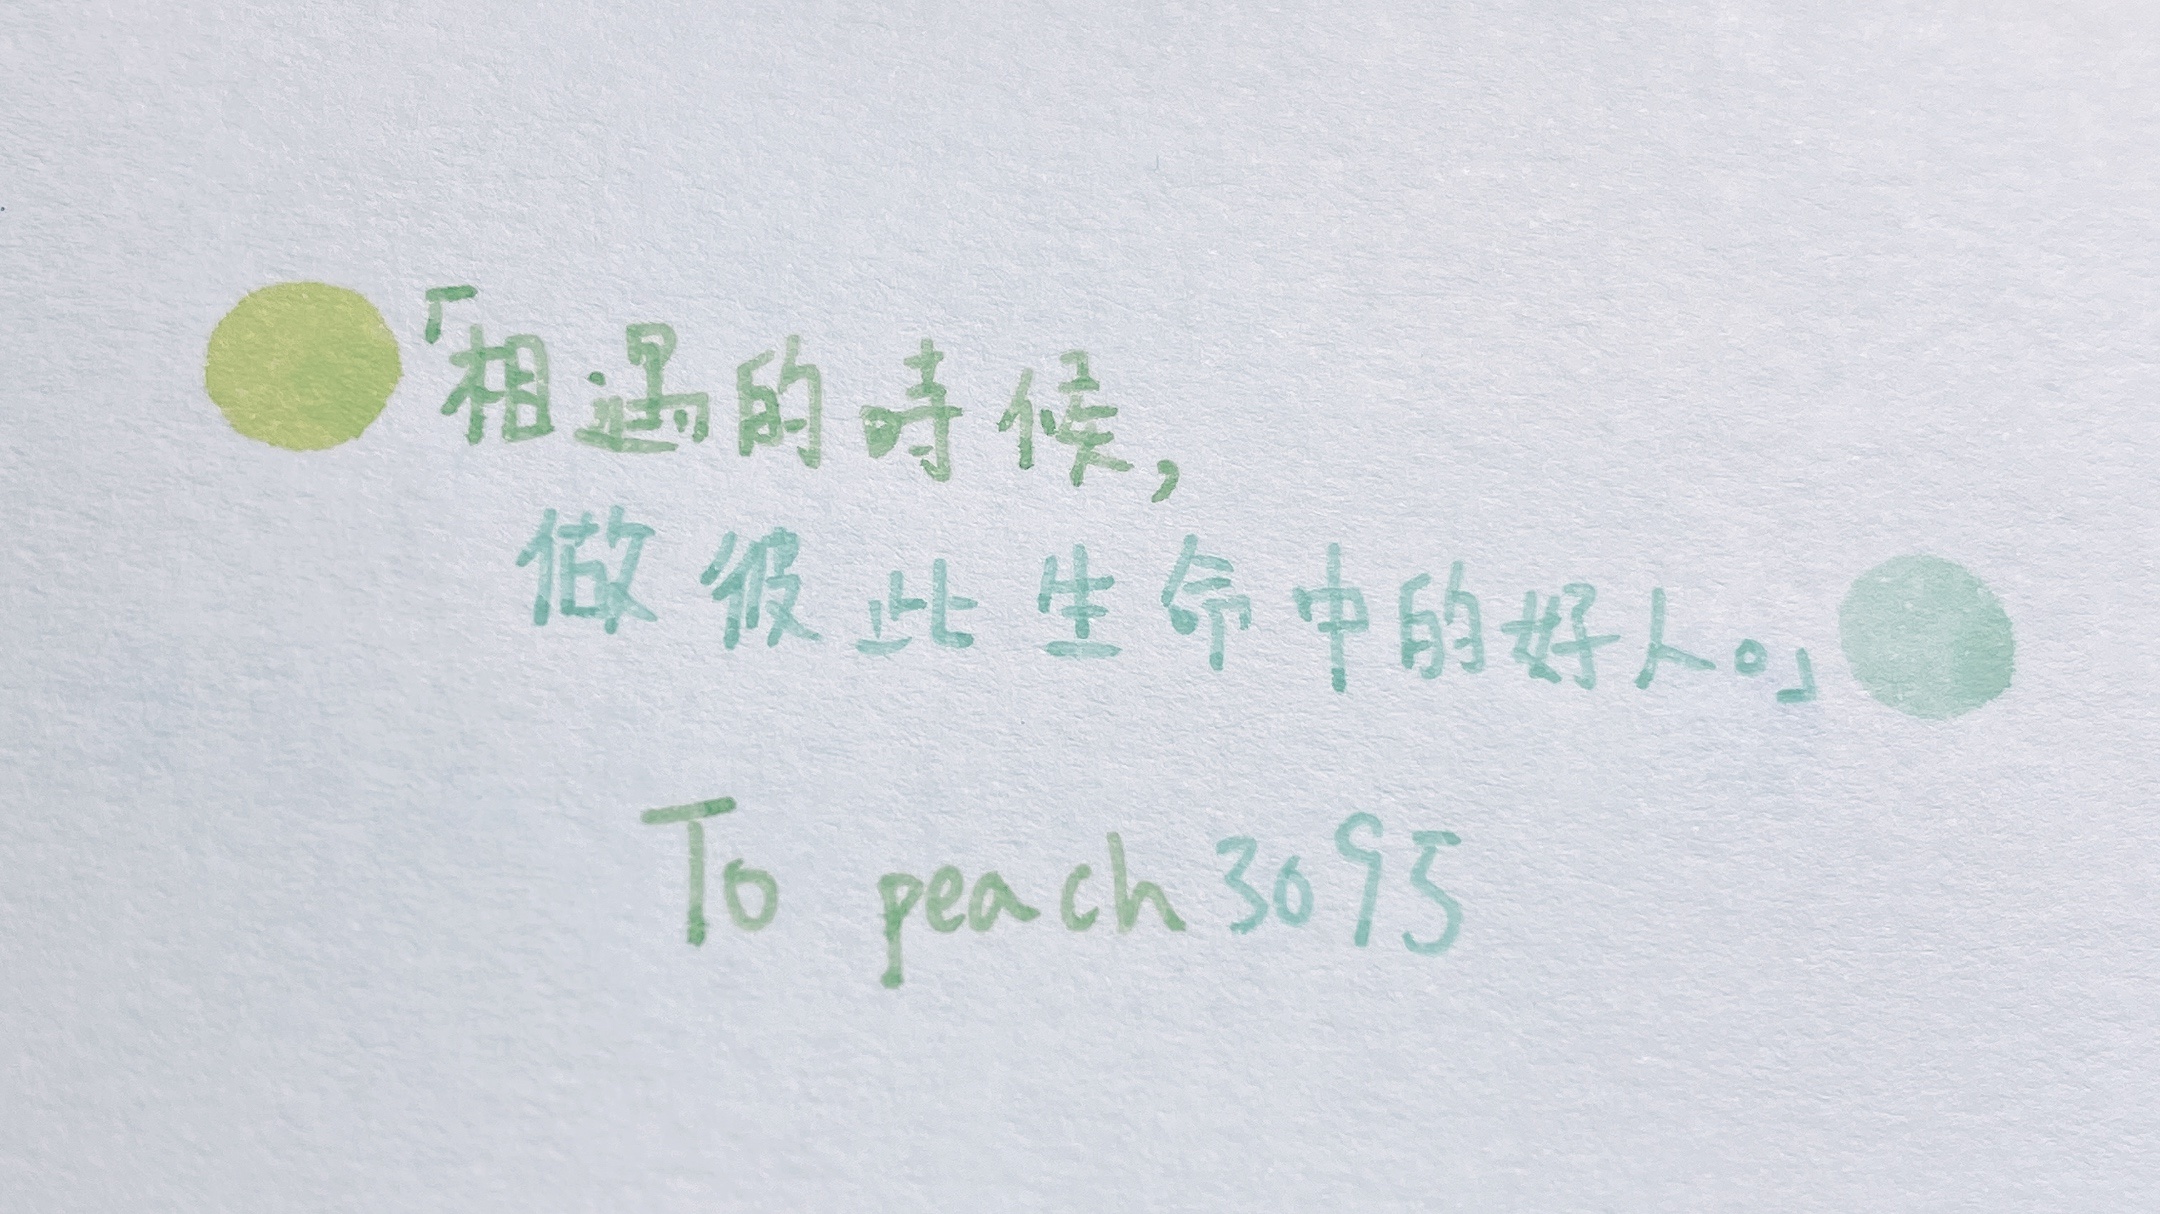 「相遇的時候，
做彼此生命中的好人。」
To peach3095